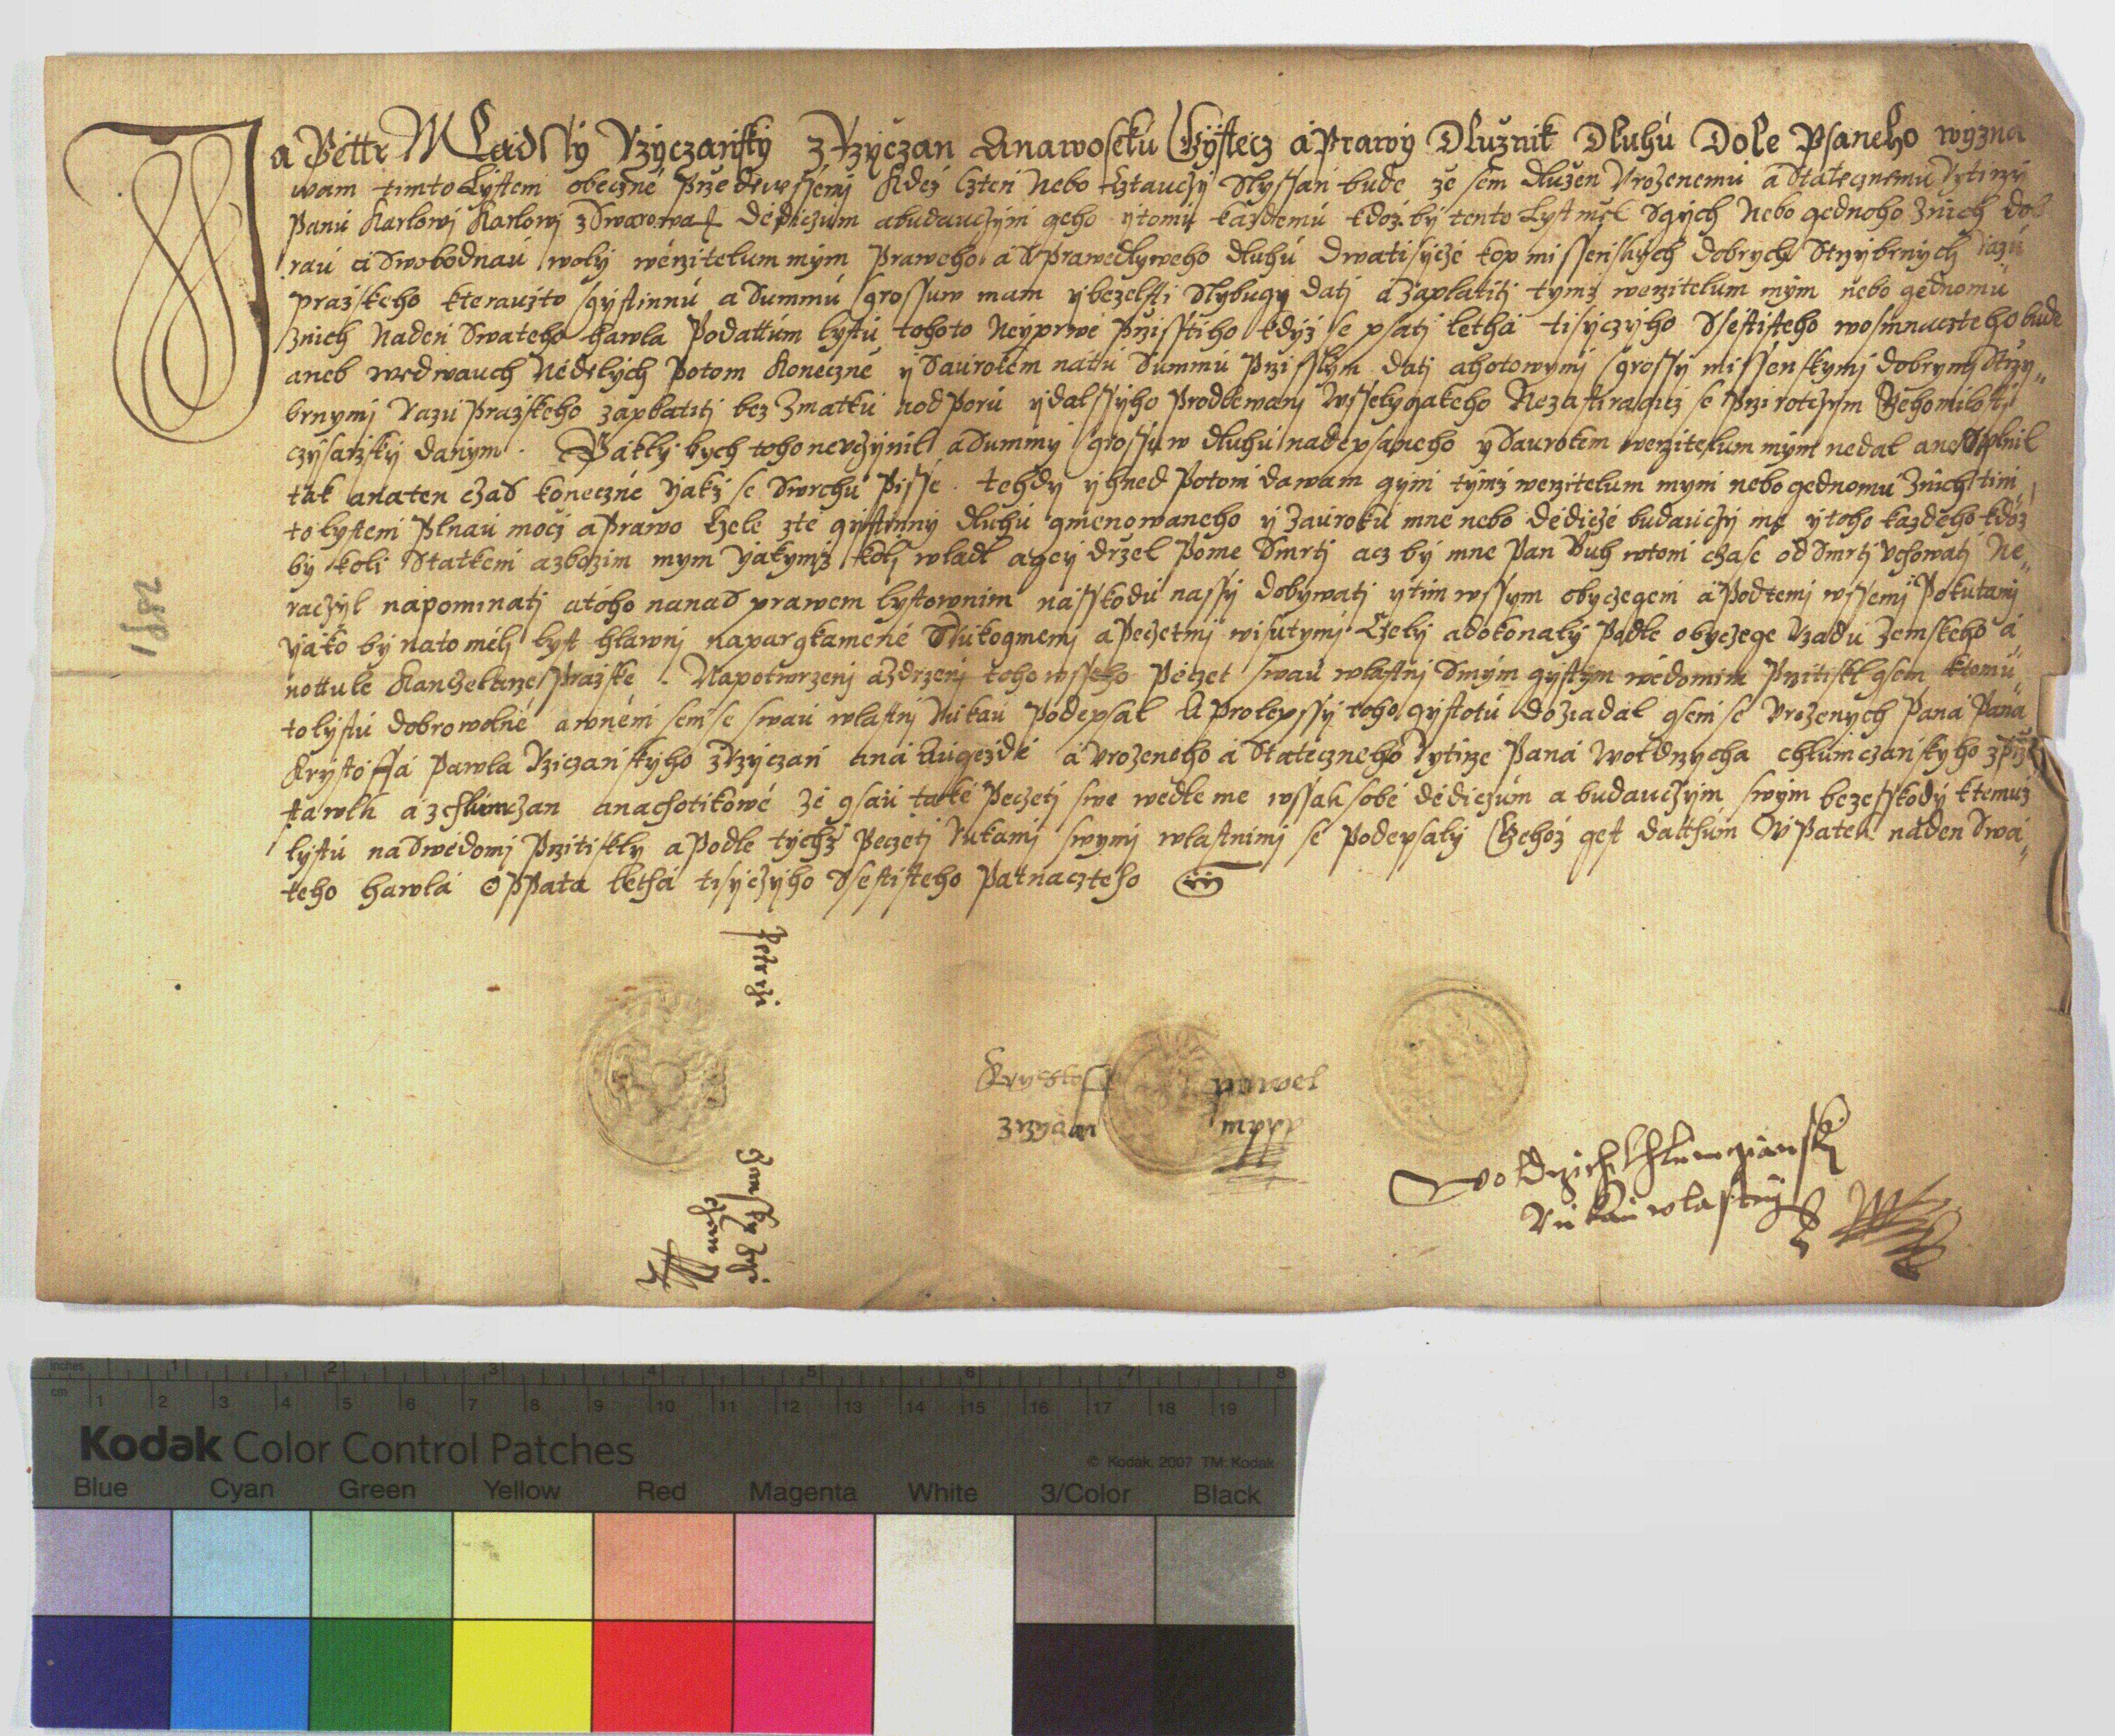 Ja Pettr Mladssy Rzyczansky z Rzyczan Anawoseku Gystecz a Prawy Dlužnik Dluhu Dole Psaneho wyzna
wam timto Lystem obeczně přzedewssemi kdež čzten Nebo čztauczy Slyssan bude že sem dlužen Urozenemu a Statecznemu Rytirzy
Panu Karlowi Karlowi z Swarowa dědiczum abudauczym geho ytomu každemu kdož by tento Lyst měl Sgych Nebo gednoho znich dob
rau a Swobodnau woly wěrzitelum mym Praweho a Sprawedlyweho dluhu dwatisycze kop missenskych dobrych Strzybrnych razu
pražskeho kteraužto gystinnu a Summu grossuw mam ybezelsti Slybugy dati a zaplatiti tymž werzitelum mym nebo gednomu
znich Naden Swateho hawla Podattum lystu tohoto Neyprwe Przisstiho kdyz se psati letha tisyczyho Ssestisteho wosmnacteho bude
aneb wedwauch Neďelych Potom Koneczně y Saurokem natu Summu Przisslym dati ahotowymi grossy missenskymi dobrymi Strzy„
brnymi razu Pražskeho zaplatiti bez Zmatku, y dalssyho Prodlewani Wsselygakeho Nezastiragicz se Przirotczym Geho milosti
czysarzsky danym. Paklybych toho neuczynil a Summy grossuw dluhu nadepsaneho y Saurokem werzitelum mym nedal ane Splnil
tak anaten czas koneczně yakž se Swrchu Pisse. tehdy yhned Potom dawam gym tymž werzitelum mym nebo gednomu Znich tim
to lystem Plnau mocz a Prawo Czele zte gystinny dluhu gmenowaneho y Zauroku mne nebo dědicze budauczy me ytoho každeho kdož
by koli Statkem azbozim mym yakymž koli wladl agey držel Pome Smrti acz by mne Pan Buh wtom czase od Smrti Uchowati Ne„
raczyl napominati atoho nanas prawem lystownim nasskodu nassy dobywati ytim wssym obyczegem a Podtemi wssemi Pokutami
yako by nato měli lyst hlawni napargkameně Srukogmemi a Peczetmi wisutymi Czely adokonaly Podle obyczege Rzadu Zemskeho a
nottule Kanczelarze Pražske. Napotwrzeni azdrzeni toho wsseho Peczet swau wlastni Smym gystym wědomim Przitiskl gsem ktomu„
to lystu dobrowolně awněm sem se swau wlastni Rukau Podepsal A Prolepssy toho gystotu dožiadal gsem se Urozenych Pana Pana
Krystoffa Pawla Rziczanskyho z Rzyczan ana Augezdě a Urozeneho a Stateczneho Rytirze Pana Woldrzycha Chlumczanskyho z Przes
tawlk a z Chlumczan anachotikowě že gsau take Peczeti swe wedle me wssak sobě dědiczum a budauczym swym bezesskody ktemuž
lystu naswědomi Przitiskly a Podle tychž Peczeti Rukami swymi wlastnimi se Podepsaly Czehož gest datthum W Patek naden Swa„
teho hawla Oppata letha tisyczyho Ssestisteho Patnaczteho
1582
Krystoff pawel
zrzyczan mpp
woldrzich Chlumczansky
Rukau wlastny
inches 1 2 3 4 5 6 7 8
cm 1 2 3 4 5 6 7 8 9 10 11 12 13 14 15 16 17 18 19
Kodak Color Control Patches
© Kodak, 2007 TM: Kodak
Blue Cyan Green Yellow Red Magenta White 3/Color Black